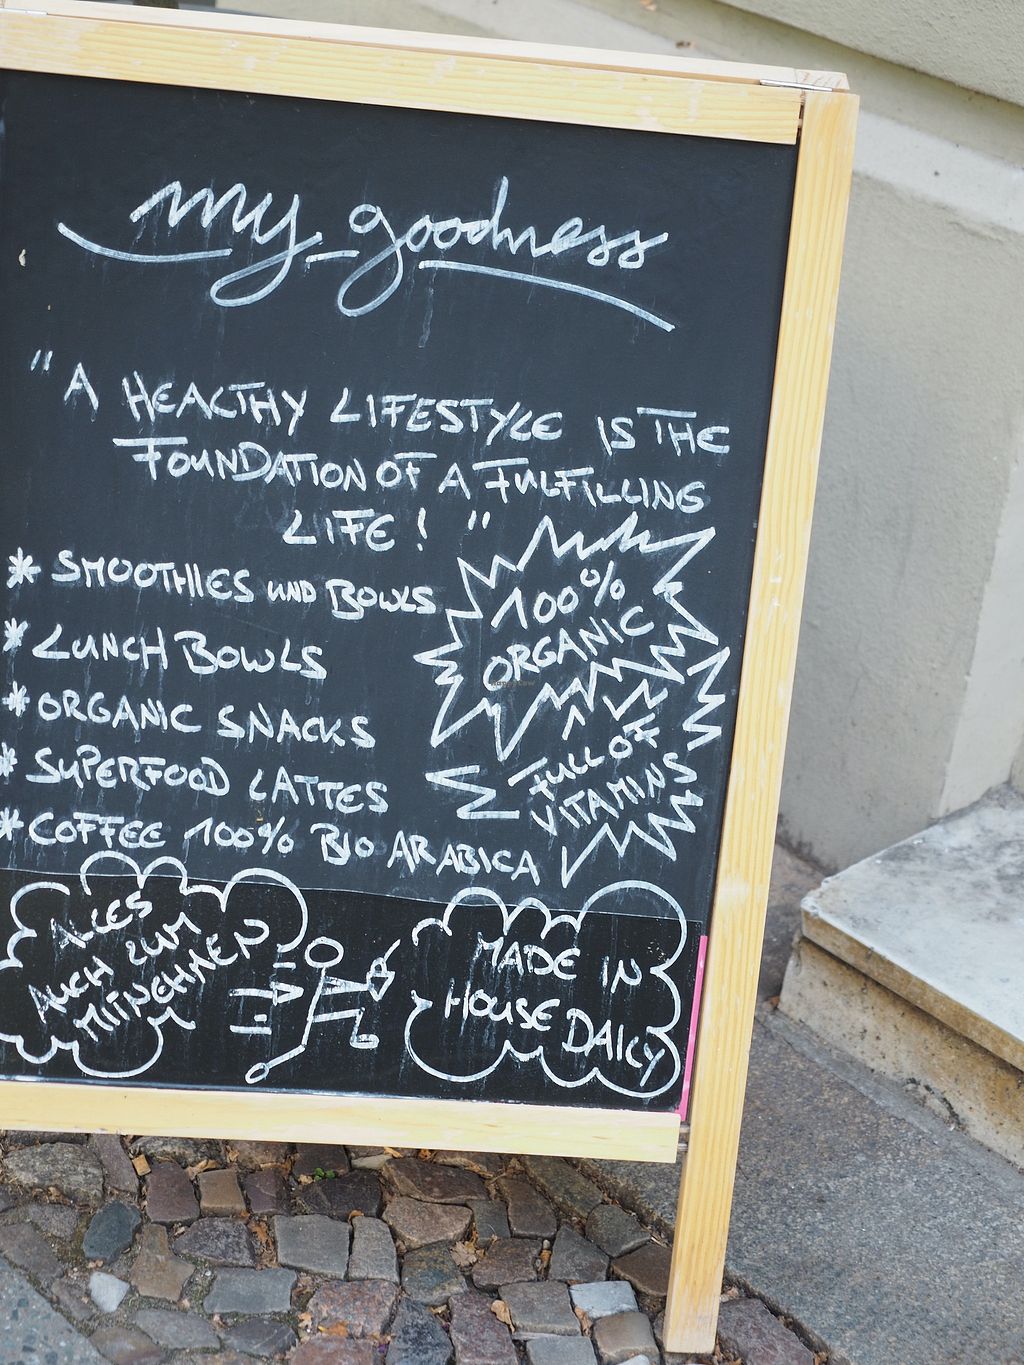 my goodness
" A HEALTHY LIFESTYLE IS THE
FOUNDATION OF A FULFILLING
LIFE ! "
* SMOOTHIES UND BOWLS
* LUNCH BOWLS
* ORGANIC SNACKS
* SUPERFOOD LATTES
* COFFEE 100% BIO ARABICA
100%
ORGANIC
FULL OF
VITAMINS
ALLES
AUCH ZUM
MITNEHMEN
MADE IN
HOUSE DAILY